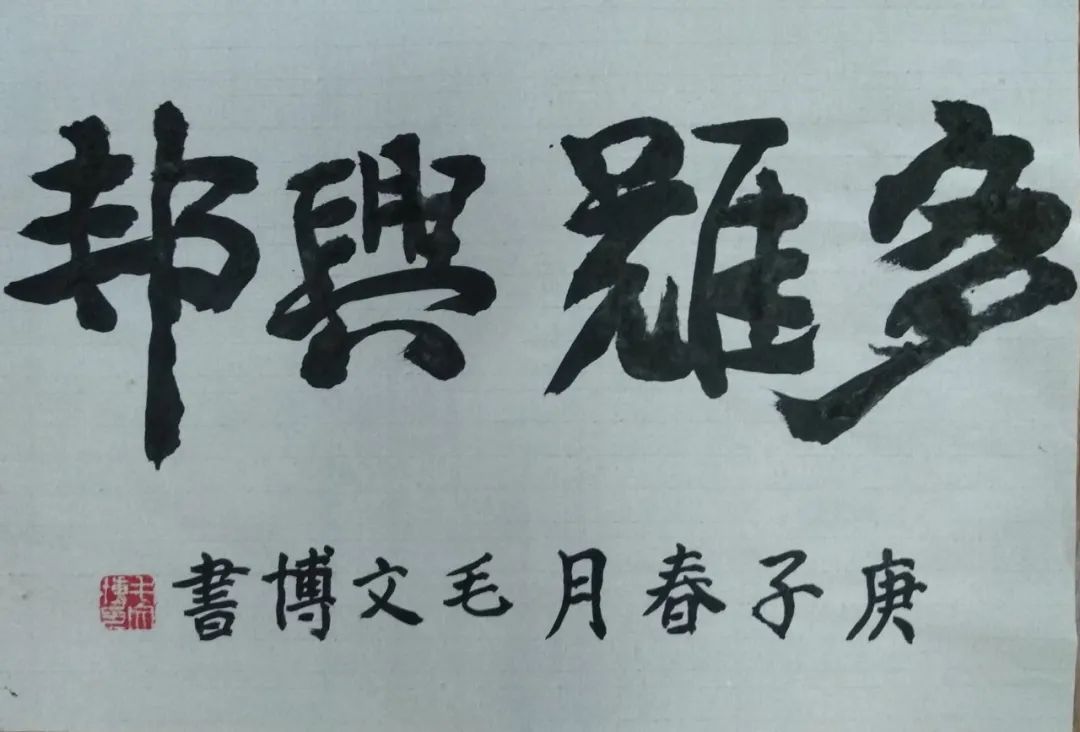 多難興邦
庚子春月毛文博書